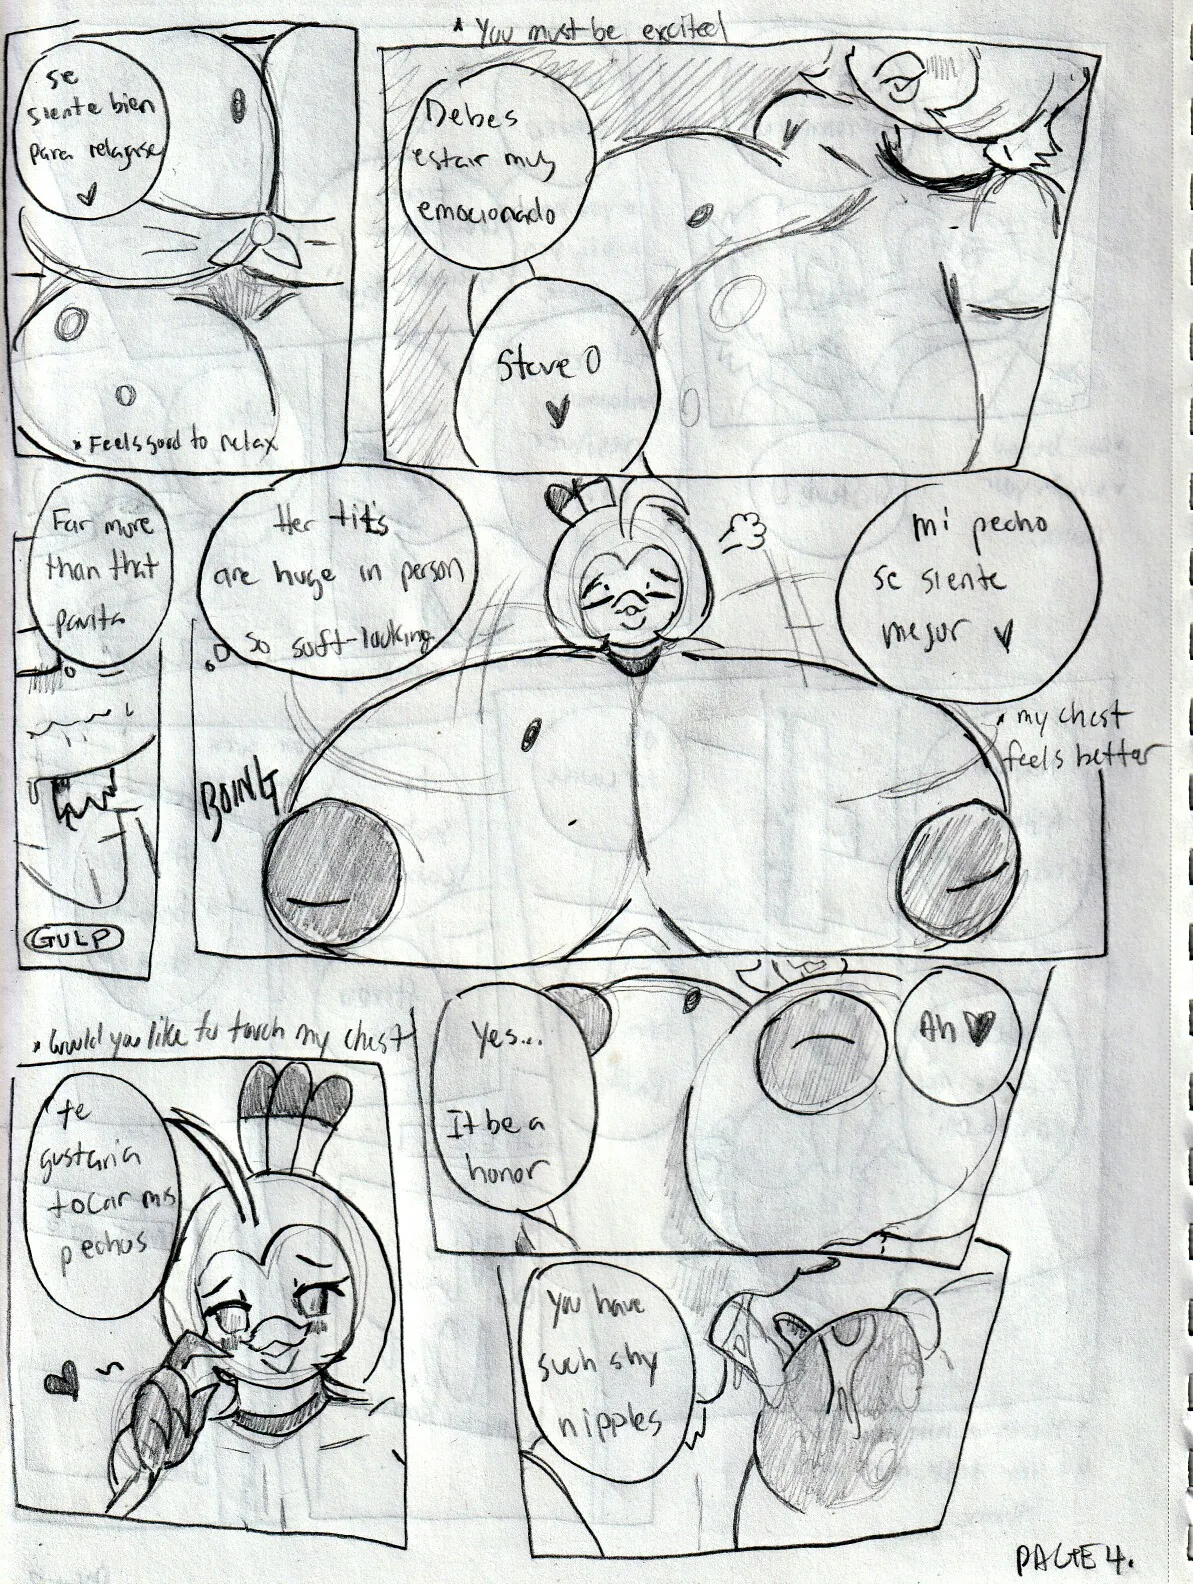 * You must be excited
se
siente bien
para relagarse
* Feels good to relax
Debes
estar muy
emocionado
Steve O
Far more
than that
Her tit's
are huge in person
so soft-looking
mi pecho
se siente
mejor
* my chest
feels better
BOING
GULP
* Would you like to touch my chest
te
gustaria
tocar mis
pechos
Yes...
It be a
honor
Ah
You have
such shy
nipples
PAGE 4.